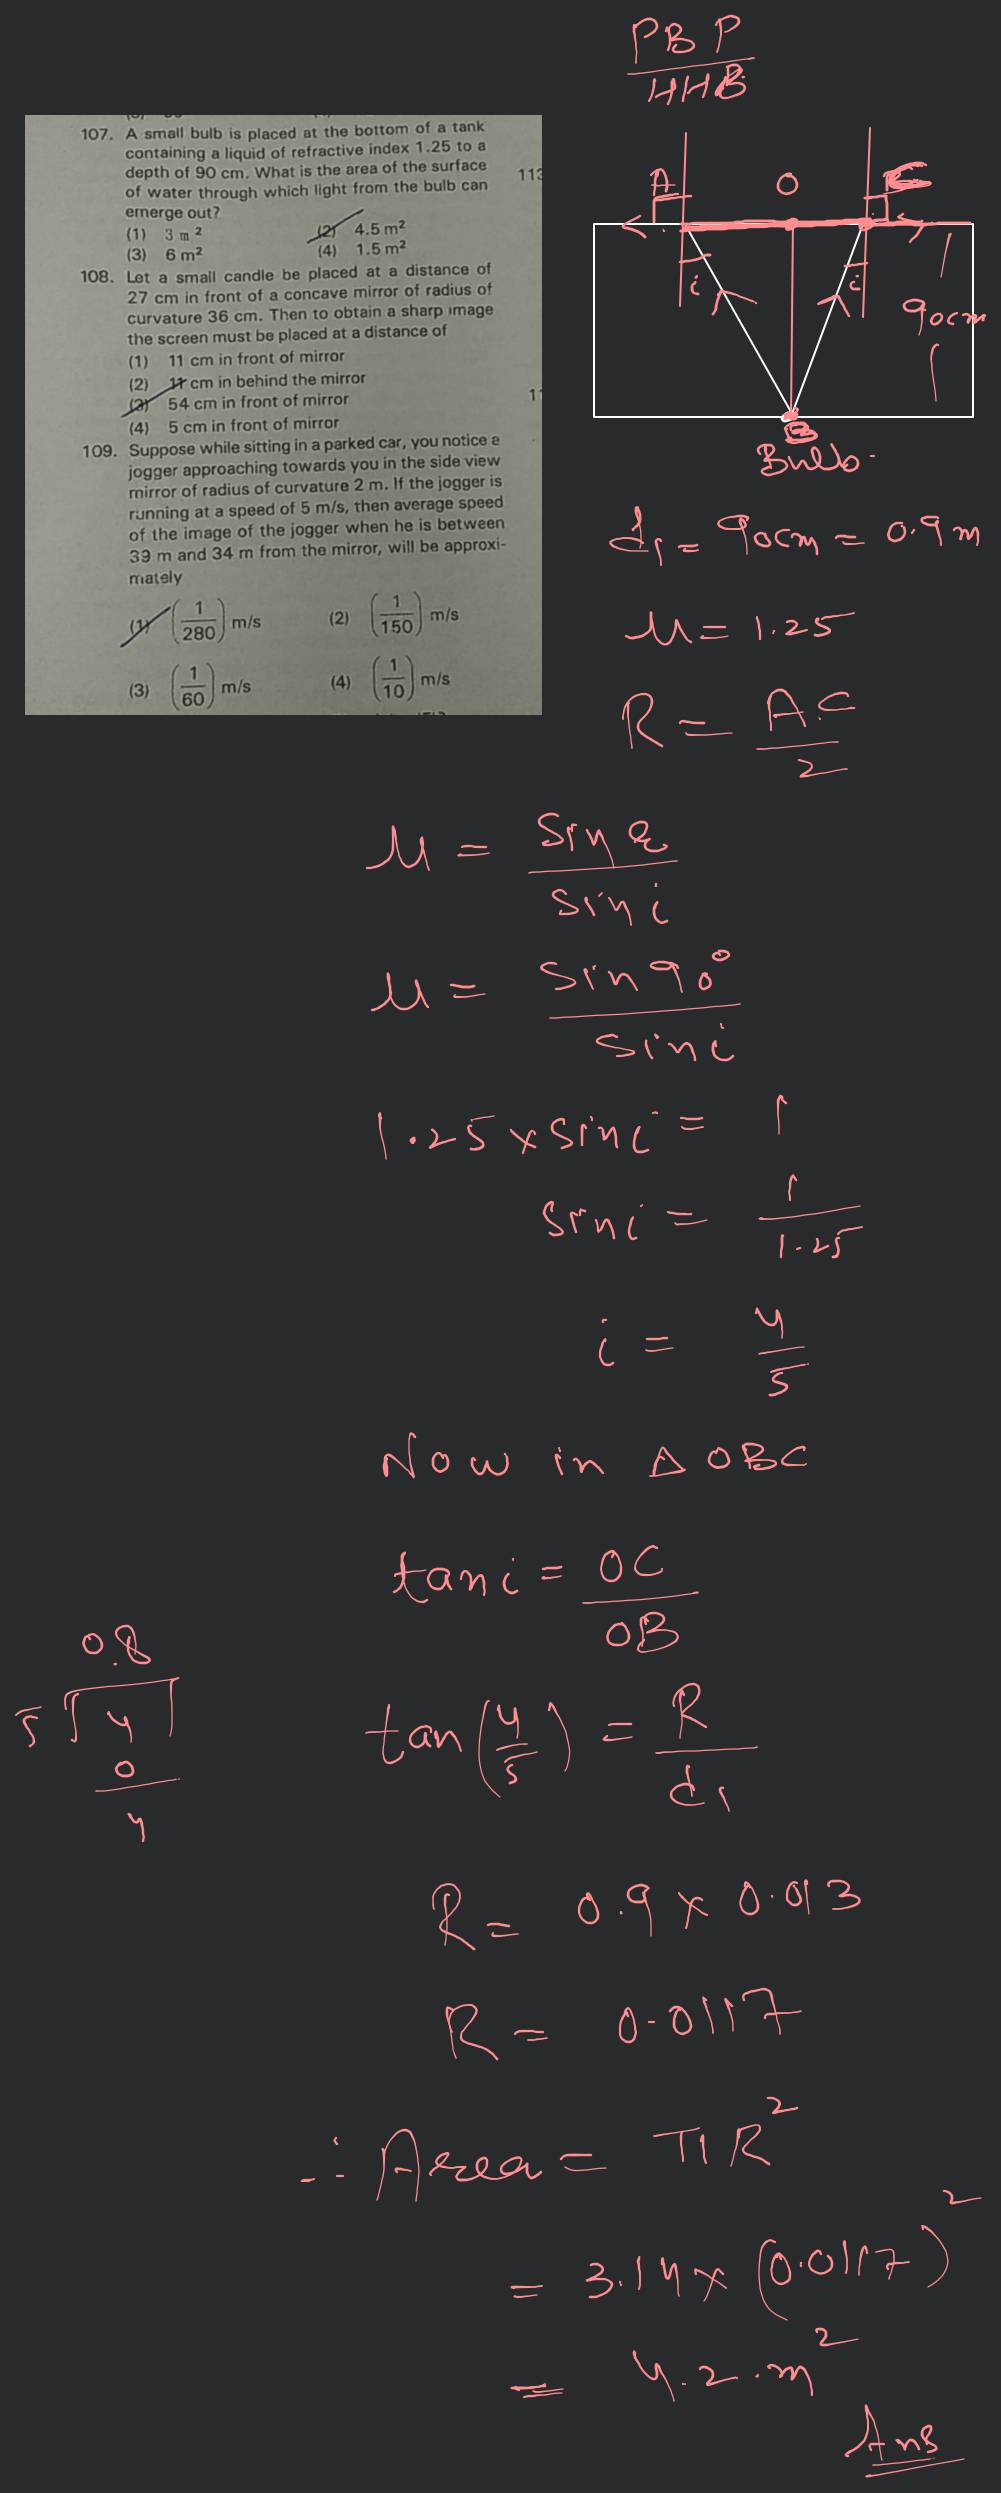 P B P
H H B
107. A small bulb is placed at the bottom of a tank
containing a liquid of refractive index 1.25 to a
depth of 90 cm. What is the area of the surface
of water through which light from the bulb can
emerge out?
(1) 3 m² (2) 4.5 m²
(3) 6 m² (4) 1.5 m²
108. Let a small candle be placed at a distance of
27 cm in front of a concave mirror of radius of
curvature 36 cm. Then to obtain a sharp image
the screen must be placed at a distance of
(1) 11 cm in front of mirror
(2) 11 cm in behind the mirror
(3) 54 cm in front of mirror
(4) 5 cm in front of mirror
109. Suppose while sitting in a parked car, you notice a
jogger approaching towards you in the side view
mirror of radius of curvature 2 m. If the jogger is
running at a speed of 5 m/s, then average speed
of the image of the jogger when he is between
39 m and 34 m from the mirror, will be approxi-
mately
(1) (1/280) m/s (2) (1/150) m/s
(3) (1/60) m/s (4) (1/10) m/s
113
11
A O C
i i
90cm
B
Bulb.
d1 = 90cm = 0.9 m
μ = 1.25
R = AC/2
μ = Sin r / Sin i
μ = Sin 90° / Sin i
1.25 × Sin i = 1
Sin i = 1/1.25
i = 4/5
Now in Δ OBC
tan i = OC/OB
0.8
5 4
0
4
tan (4/5) = R/d1
R = 0.9 × 0.013
R = 0.0117
∴ Area = πR²
= 3.14 × (0.0117)²
= 4.2 . m²
Ans